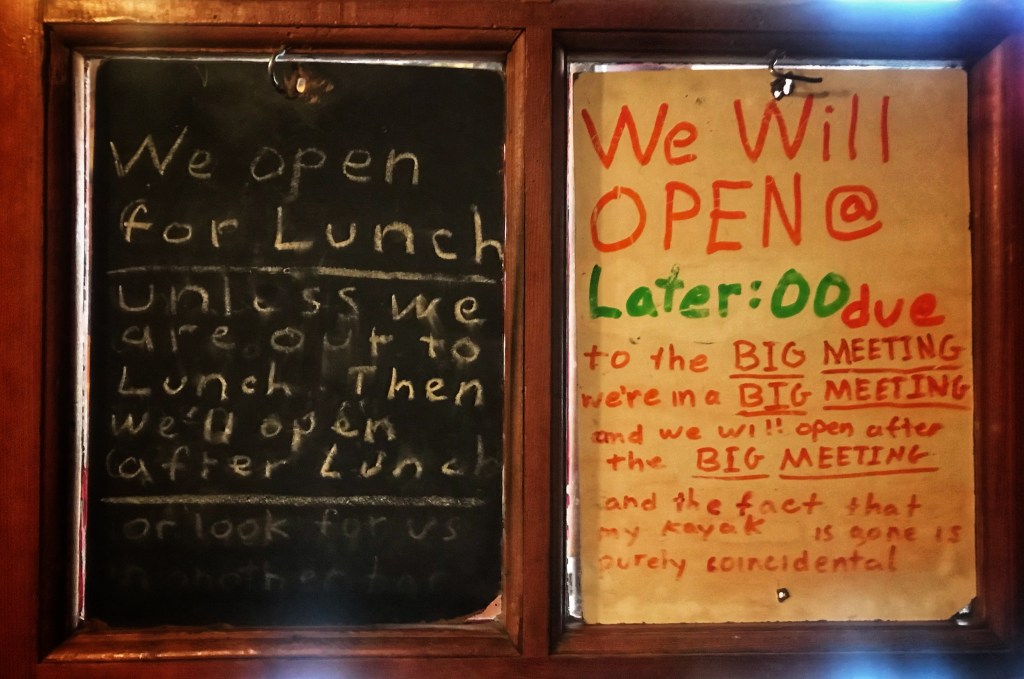 We open
for Lunch
unless we
are out to
Lunch. Then
we'll open
(after Lunch
or look for us
in another bar
We Will
OPEN @
Later:00 due
to the BIG MEETING
we're in a BIG MEETING
and we will open after
the BIG MEETING
and the fact that
my kayak is gone is
purely coincidental